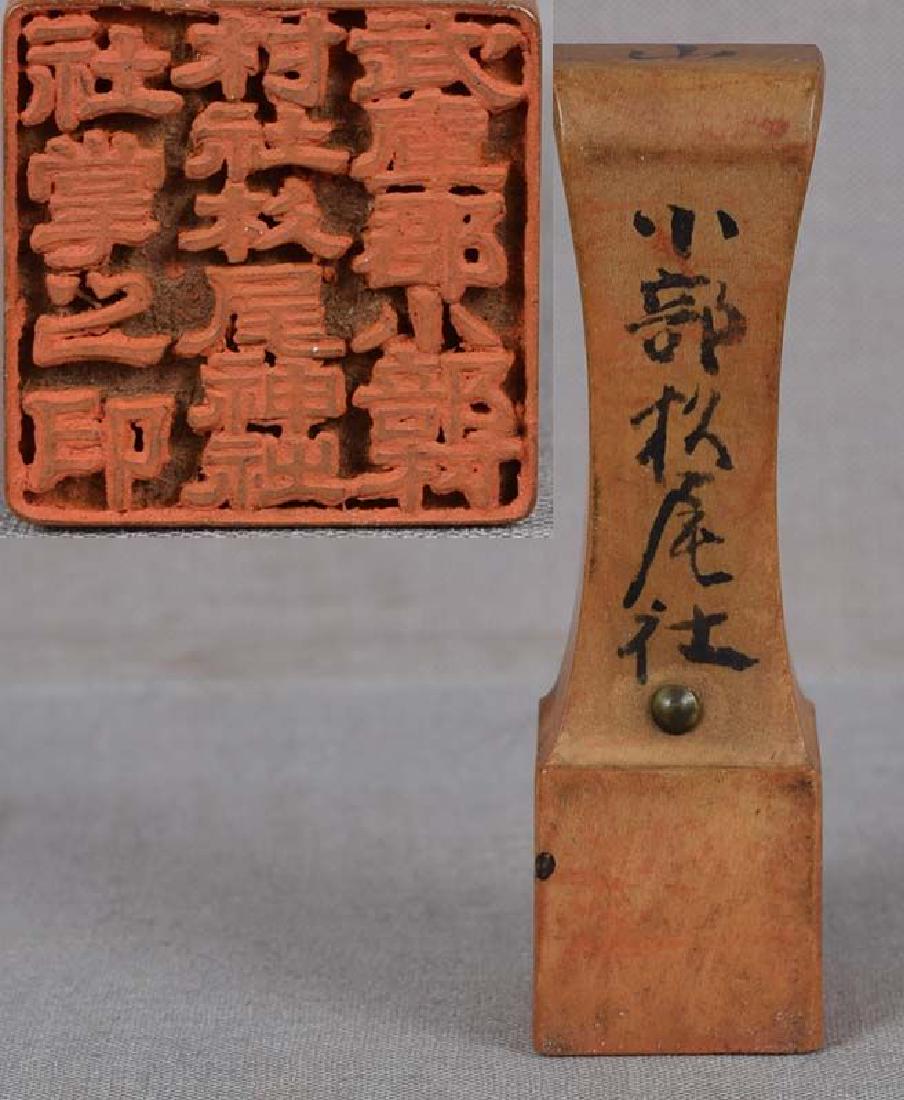 武庫郡小部
村社松尾神社
社掌之印
小部松尾社